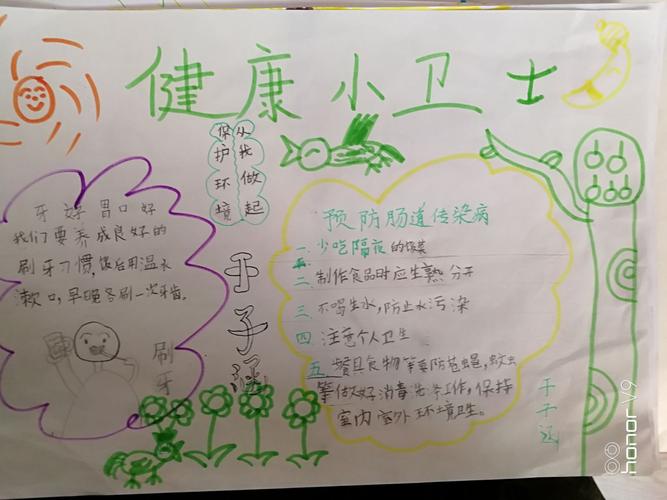 健康小卫士
保护环境
从我做起
牙好胃口好
我们要养成良好的
刷牙习惯,饭后用温水
漱口,早晚各刷一次牙齿。
刷牙
于子涵
预防肠道传染病
一 少吃隔夜的饭菜
二 制作食品时应生熟分开
三 不喝生水,防止水污染
四 注意个人卫生
五 餐具食物等要防苍蝇,蚊虫
等做好消毒洗涤工作,保持
室内室外环境卫生。
于子涵
honor V9